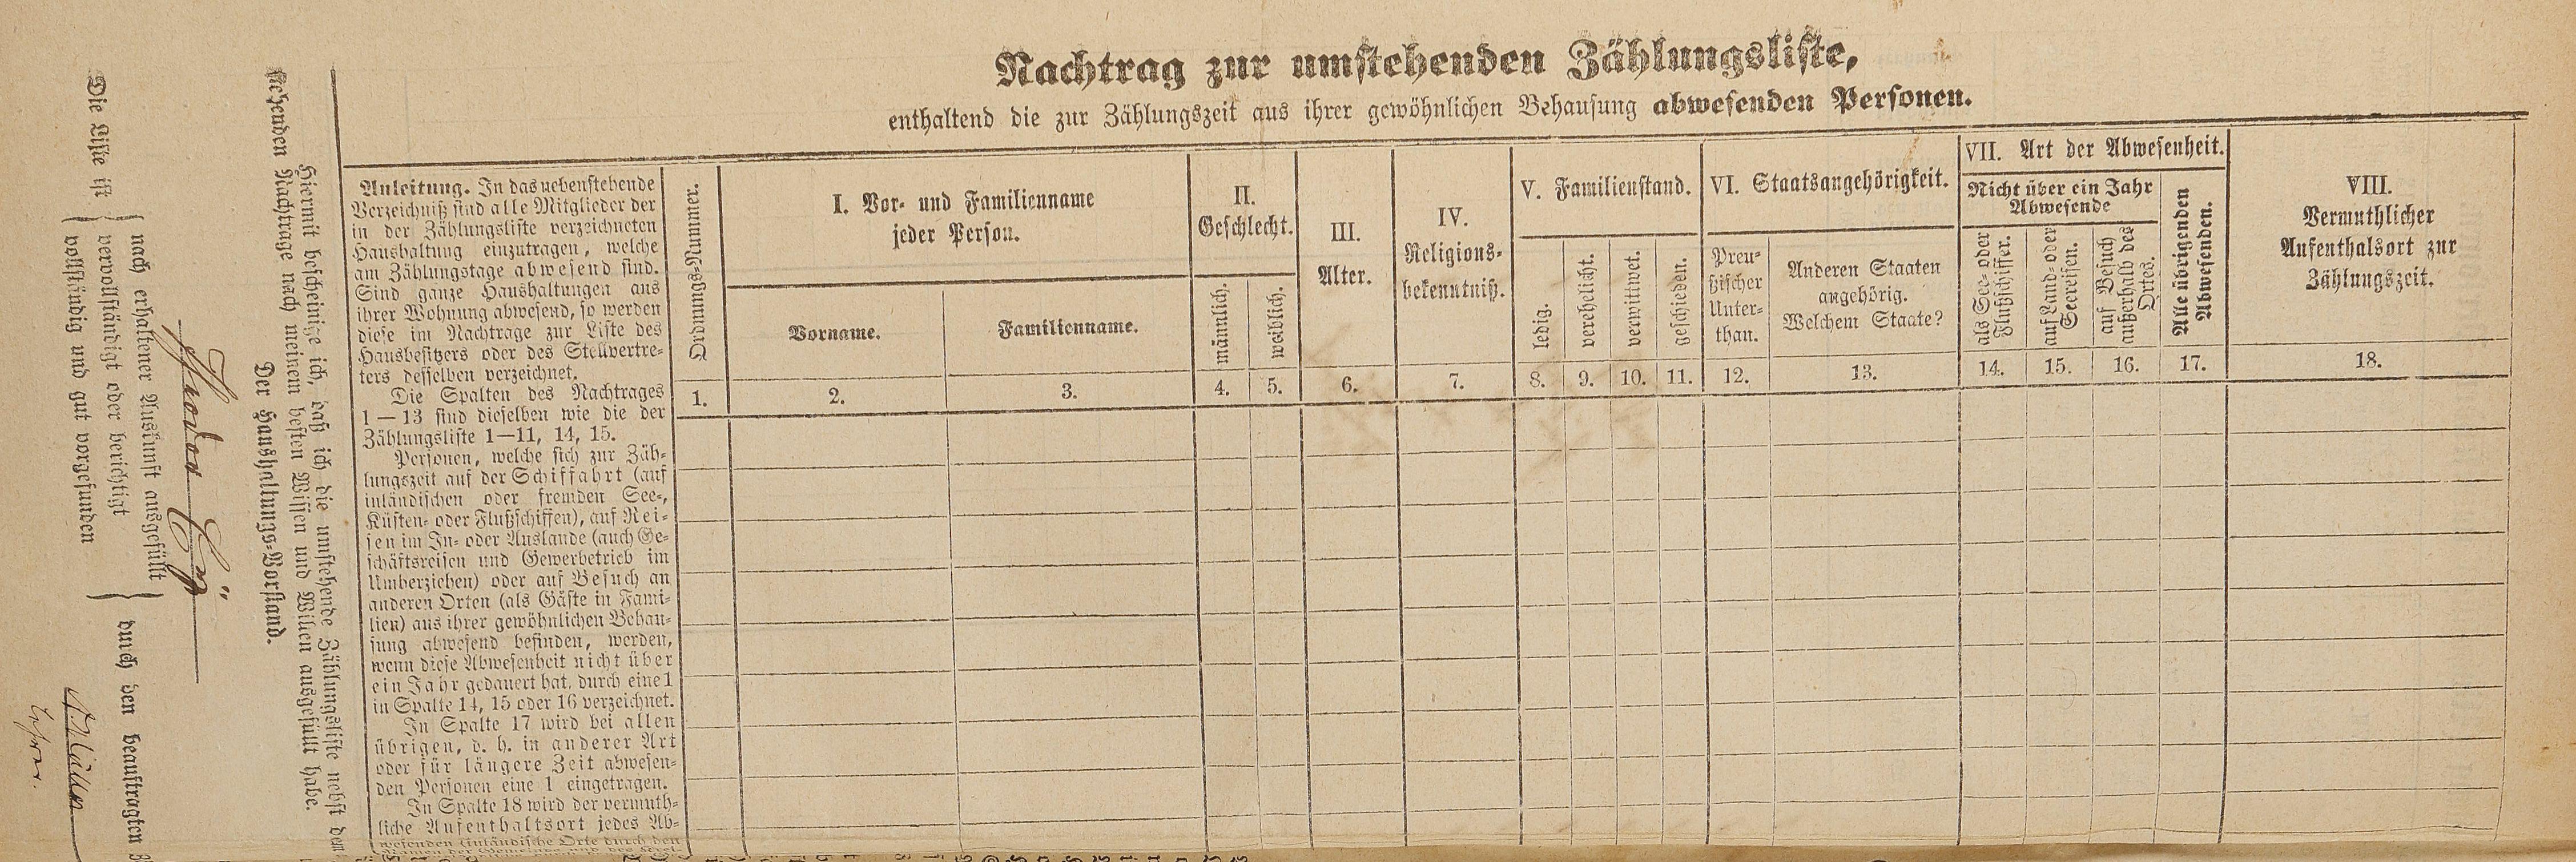 Nachtrag zur umstehenden Zählungsliste,
enthaltend die zur Zählungszeit aus ihrer gewöhnlichen Behausung abwesenden Personen.
Anleitung. In das nebenstehende
Verzeichniß sind alle Mitglieder der
in der Zählungsliste verzeichneten
Haushaltung einzutragen, welche
am Zählungstage abwesend sind.
Sind ganze Haushaltungen aus
ihrer Wohnung abwesend, so werden
diese im Nachtrage zur Liste des
Hausbesitzers oder des Stellvertre-
ters desselben verzeichnet.
Die Spalten des Nachtrages
1—13 sind dieselben wie die der
Zählungsliste 1—11, 14, 15.
Personen, welche sich zur Zäh-
lungszeit auf der Schiffahrt (auf
inländischen oder fremden See-,
Küsten- oder Flußschiffen), auf Rei-
sen im In- oder Auslande (auch Ge-
schäftsreisen und Gewerbetrieb im
Umherziehen) oder auf Besuch an
anderen Orten (als Gäste in Fami-
lien) aus ihrer gewöhnlichen Behau-
sung abwesend befinden, werden,
wenn diese Abwesenheit nicht über
ein Jahr gedauert hat, durch eine 1
in Spalte 14, 15 oder 16 verzeichnet.
In Spalte 17 wird bei allen
übrigen, d. h. in anderer Art
oder für längere Zeit abwesen-
den Personen eine 1 eingetragen.
In Spalte 18 wird der vermuth-
liche Aufenthaltsort jedes Ab-
wesenden (inländische Orte durch den
Namen der Gemeinde und des Krei-
Ordnungs-Nummer.
1.
I. Vor- und Familienname
jeder Person.
Vorname.
2.
Familienname.
3.
II.
Geschlecht.
männlich.
4.
weiblich.
5.
III.
Alter.
6.
IV.
Religions-
bekenntniß.
7.
V. Familienstand.
ledig.
8.
verehelicht.
9.
verwittwet.
10.
geschieden.
11.
VI. Staatsangehörigkeit.
Preu-
ßischer
Unter-
than.
12.
Anderen Staaten
angehörig.
Welchem Staate?
13.
VII. Art der Abwesenheit.
Nicht über ein Jahr
Abwesende
als See- oder
Flußschiffer.
14.
auf Land- oder
Seereisen.
15.
auf Besuch
außerhalb des
Ortes.
16.
Alle übrigenden
Abwesenden.
17.
VIII.
Vermuthlicher
Aufenthalsort zur
Zählungszeit.
18.
Hiermit bescheinige ich, daß ich die umstehende Zählungsliste nebst dem
stehenden Nachtrage nach meinem besten Wissen und Willen ausgefüllt habe.
Der Haushaltungs-Vorstand.
Die Liste ist
nach erhaltener Auskunft ausgefüllt
vervollständigt oder berichtigt
vollständig und gut vorgefunden
durch den beauftragten
Müller
Lehrer.